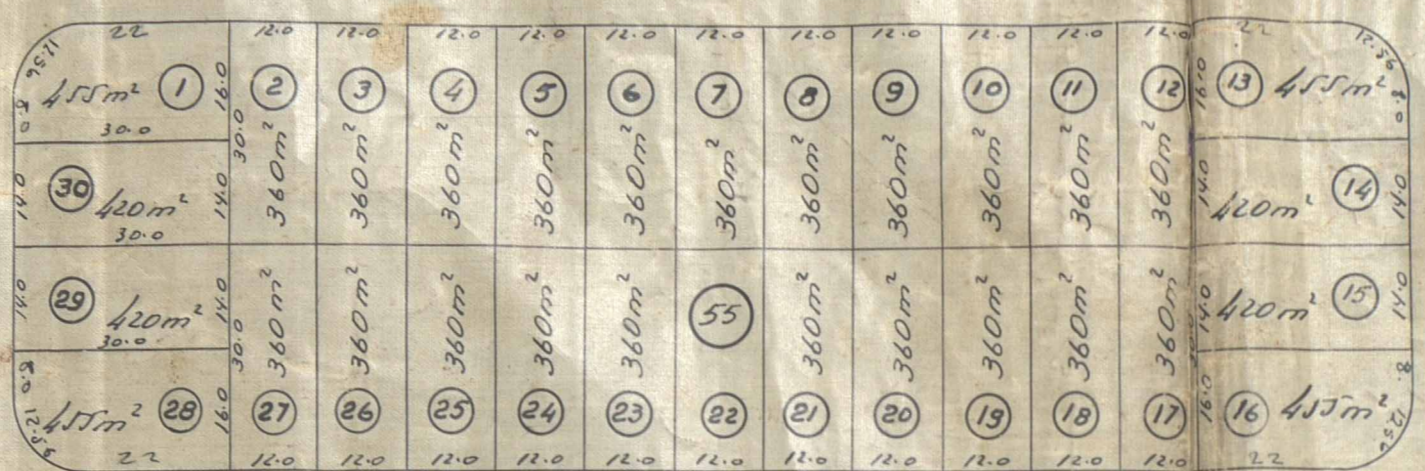 22 12.0 12.0 12.0 12.0 12.0 12.0 12.0 12.0 12.0 12.0 12.0 22
12.56 12.56
455m² 1 16.0 2 3 4 5 6 7 8 9 10 11 12 16.0 13 455m²
8.0 8.0
30.0 30.0
360m² 360m² 360m² 360m² 360m² 360m² 360m² 360m² 360m² 360m² 360m²
14.0 30 420m² 14.0 14.0 420m² 14 14.0
30.0
14.0 29 420m² 14.0 14.0 420m² 15 14.0
30.0 30.0
360m² 360m² 360m² 360m² 360m² 55 360m² 360m² 360m² 360m² 360m²
8.0 8.
455m² 28 16.0 27 26 25 24 23 22 21 20 19 18 17 16.0 16 455m²
12.56 12.56
22 12.0 12.0 12.0 12.0 12.0 12.0 12.0 12.0 12.0 12.0 12.0 22